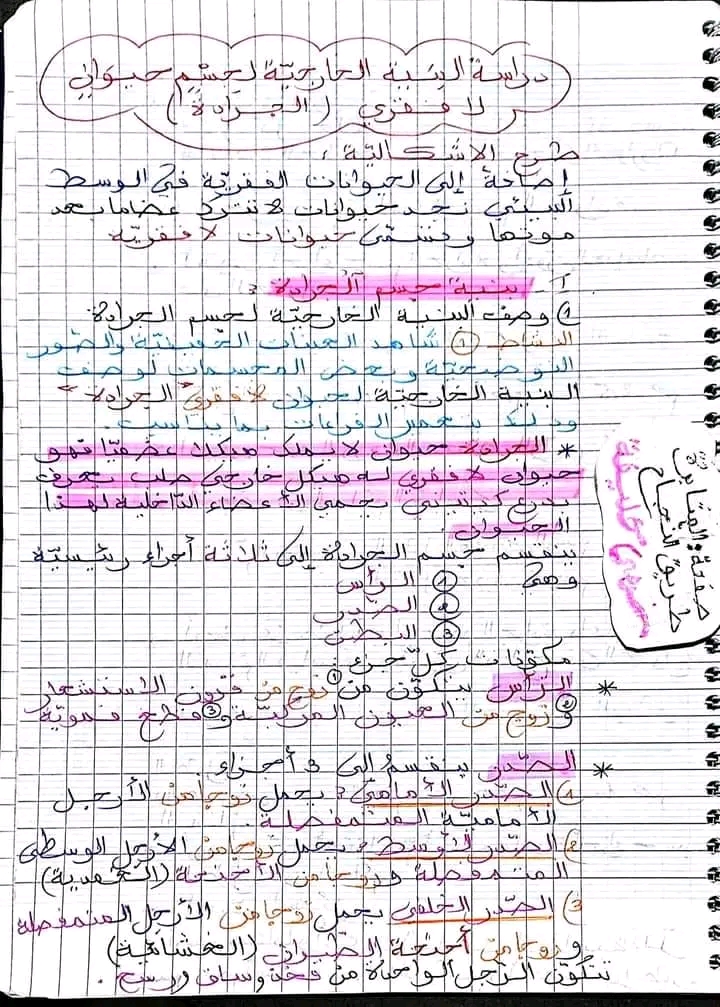 دراسة البنية الخارجيّة لجسم حيواني
لا فقري (الجرادة)
طرح الاشكاليّة :
إضافة إلى الحيوانات الفقريّة في الوسط
البيئي نجد حيوانات لا تترك عضاما بعد
موتها وتسمّى حيوانات لا فقريّة
I - بنية جسم الجرادة :
1) وصف البنية الخارجيّة لجسم الجرادة
النشاط 1 شاهد العينات الحقيقيّة والصّور
التوضيحيّة وبعض المجسمات لوصف
البنية الخارجيّة لحيوان لا فقري "الجرادة"
وذلك بتعمير الفراغات بما يناسب.
* الجرادة حيوان لا يملك هيكلا عظميّا فهو
حيوان لا فقري له هيكل خارجي صلب يعرف
بدرع كيتيني يحمي الأعضاء الدّاخلية لهذا
الحيوان.
ينقسم جسم الجرادة إلى ثلاثة أجزاء رئيسيّة
وهي 1 الرأس
2 الصّدر
3 البطن
مكوّنات كلّ جزء :
* الرّأس يتكوّن من 1 زوج من قرون الاستشعار
و 2 زوج من العيون المركبّة و 3 قطع فمويّة
* الصّدر ينقسم إلى 3 أجزاء.
1) الصّدر الأمامي : يحمل زوجا من الأرجل
الأماميّة المتمفصلة.
2) الصّدر الأوسط : يحمل زوجا من الأرجل الوسطى
المتمفصلة وزوجا من الأجنحة (الغمدية)
3) الصّدر الخلفي يحمل زوجا من الأرجل المتمفصلة
وزوجا من أجنحة الطيران (الغشائية)
تتكوّن الرّجل الواحدة من فخذ وساق ورسغ.
صفحة:
طريق النجاح